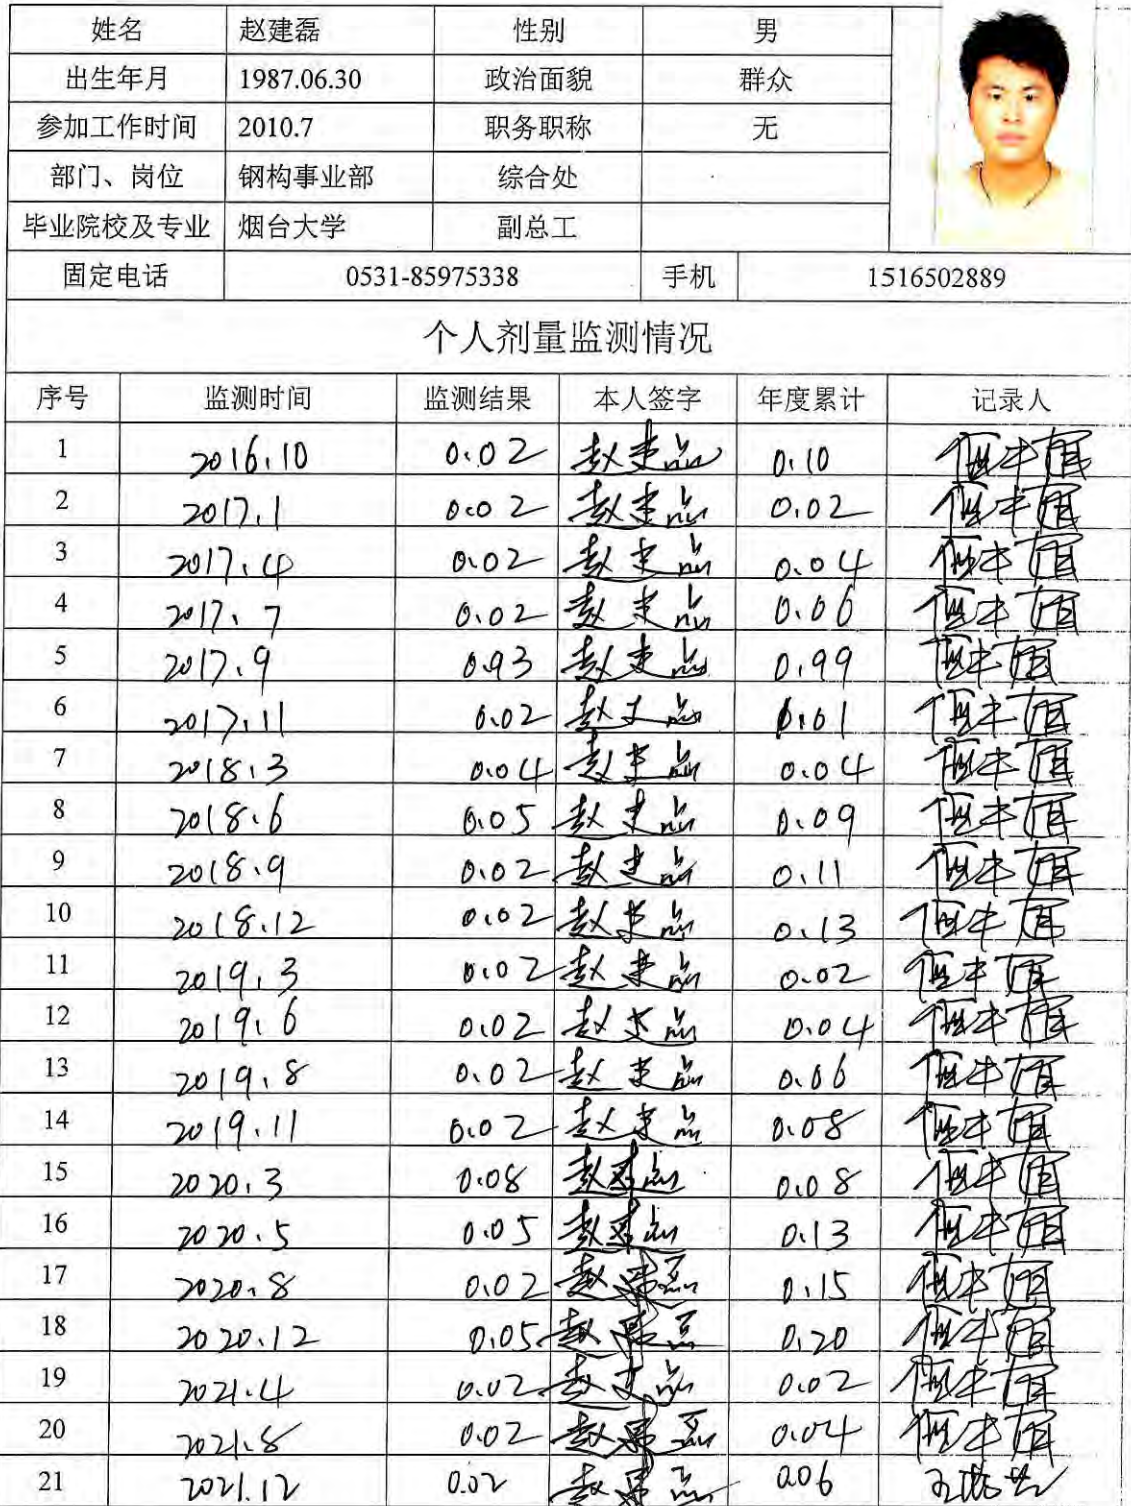 姓名 赵建磊 性别 男
出生年月 1987.06.30 政治面貌 群众
参加工作时间 2010.7 职务职称 无
部门、岗位 钢构事业部 综合处
毕业院校及专业 烟台大学 副总工
固定电话 0531-85975338 手机 1516502889
个人剂量监测情况
序号 监测时间 监测结果 本人签字 年度累计 记录人
1 2016.10 0.02 赵建磊 0.10
2 2017.1 0.02 赵建磊 0.02
3 2017.4 0.02 赵建磊 0.04
4 2017.7 0.02 赵建磊 0.06
5 2017.9 0.93 赵建磊 0.99
6 2017.11 0.02 赵建磊 1.01
7 2018.3 0.04 赵建磊 0.04
8 2018.6 0.05 赵建磊 0.09
9 2018.9 0.02 赵建磊 0.11
10 2018.12 0.02 赵建磊 0.13
11 2019.3 0.02 赵建磊 0.02
12 2019.6 0.02 赵建磊 0.04
13 2019.8 0.02 赵建磊 0.06
14 2019.11 0.02 赵建磊 0.08
15 2020.3 0.08 赵建磊 0.08
16 2020.5 0.05 赵建磊 0.13
17 2020.8 0.02 赵建磊 0.15
18 2020.12 0.05 赵建磊 0.20
19 2021.4 0.02 赵建磊 0.02
20 2021.8 0.02 赵建磊 0.04
21 2021.12 0.02 赵建磊 0.06